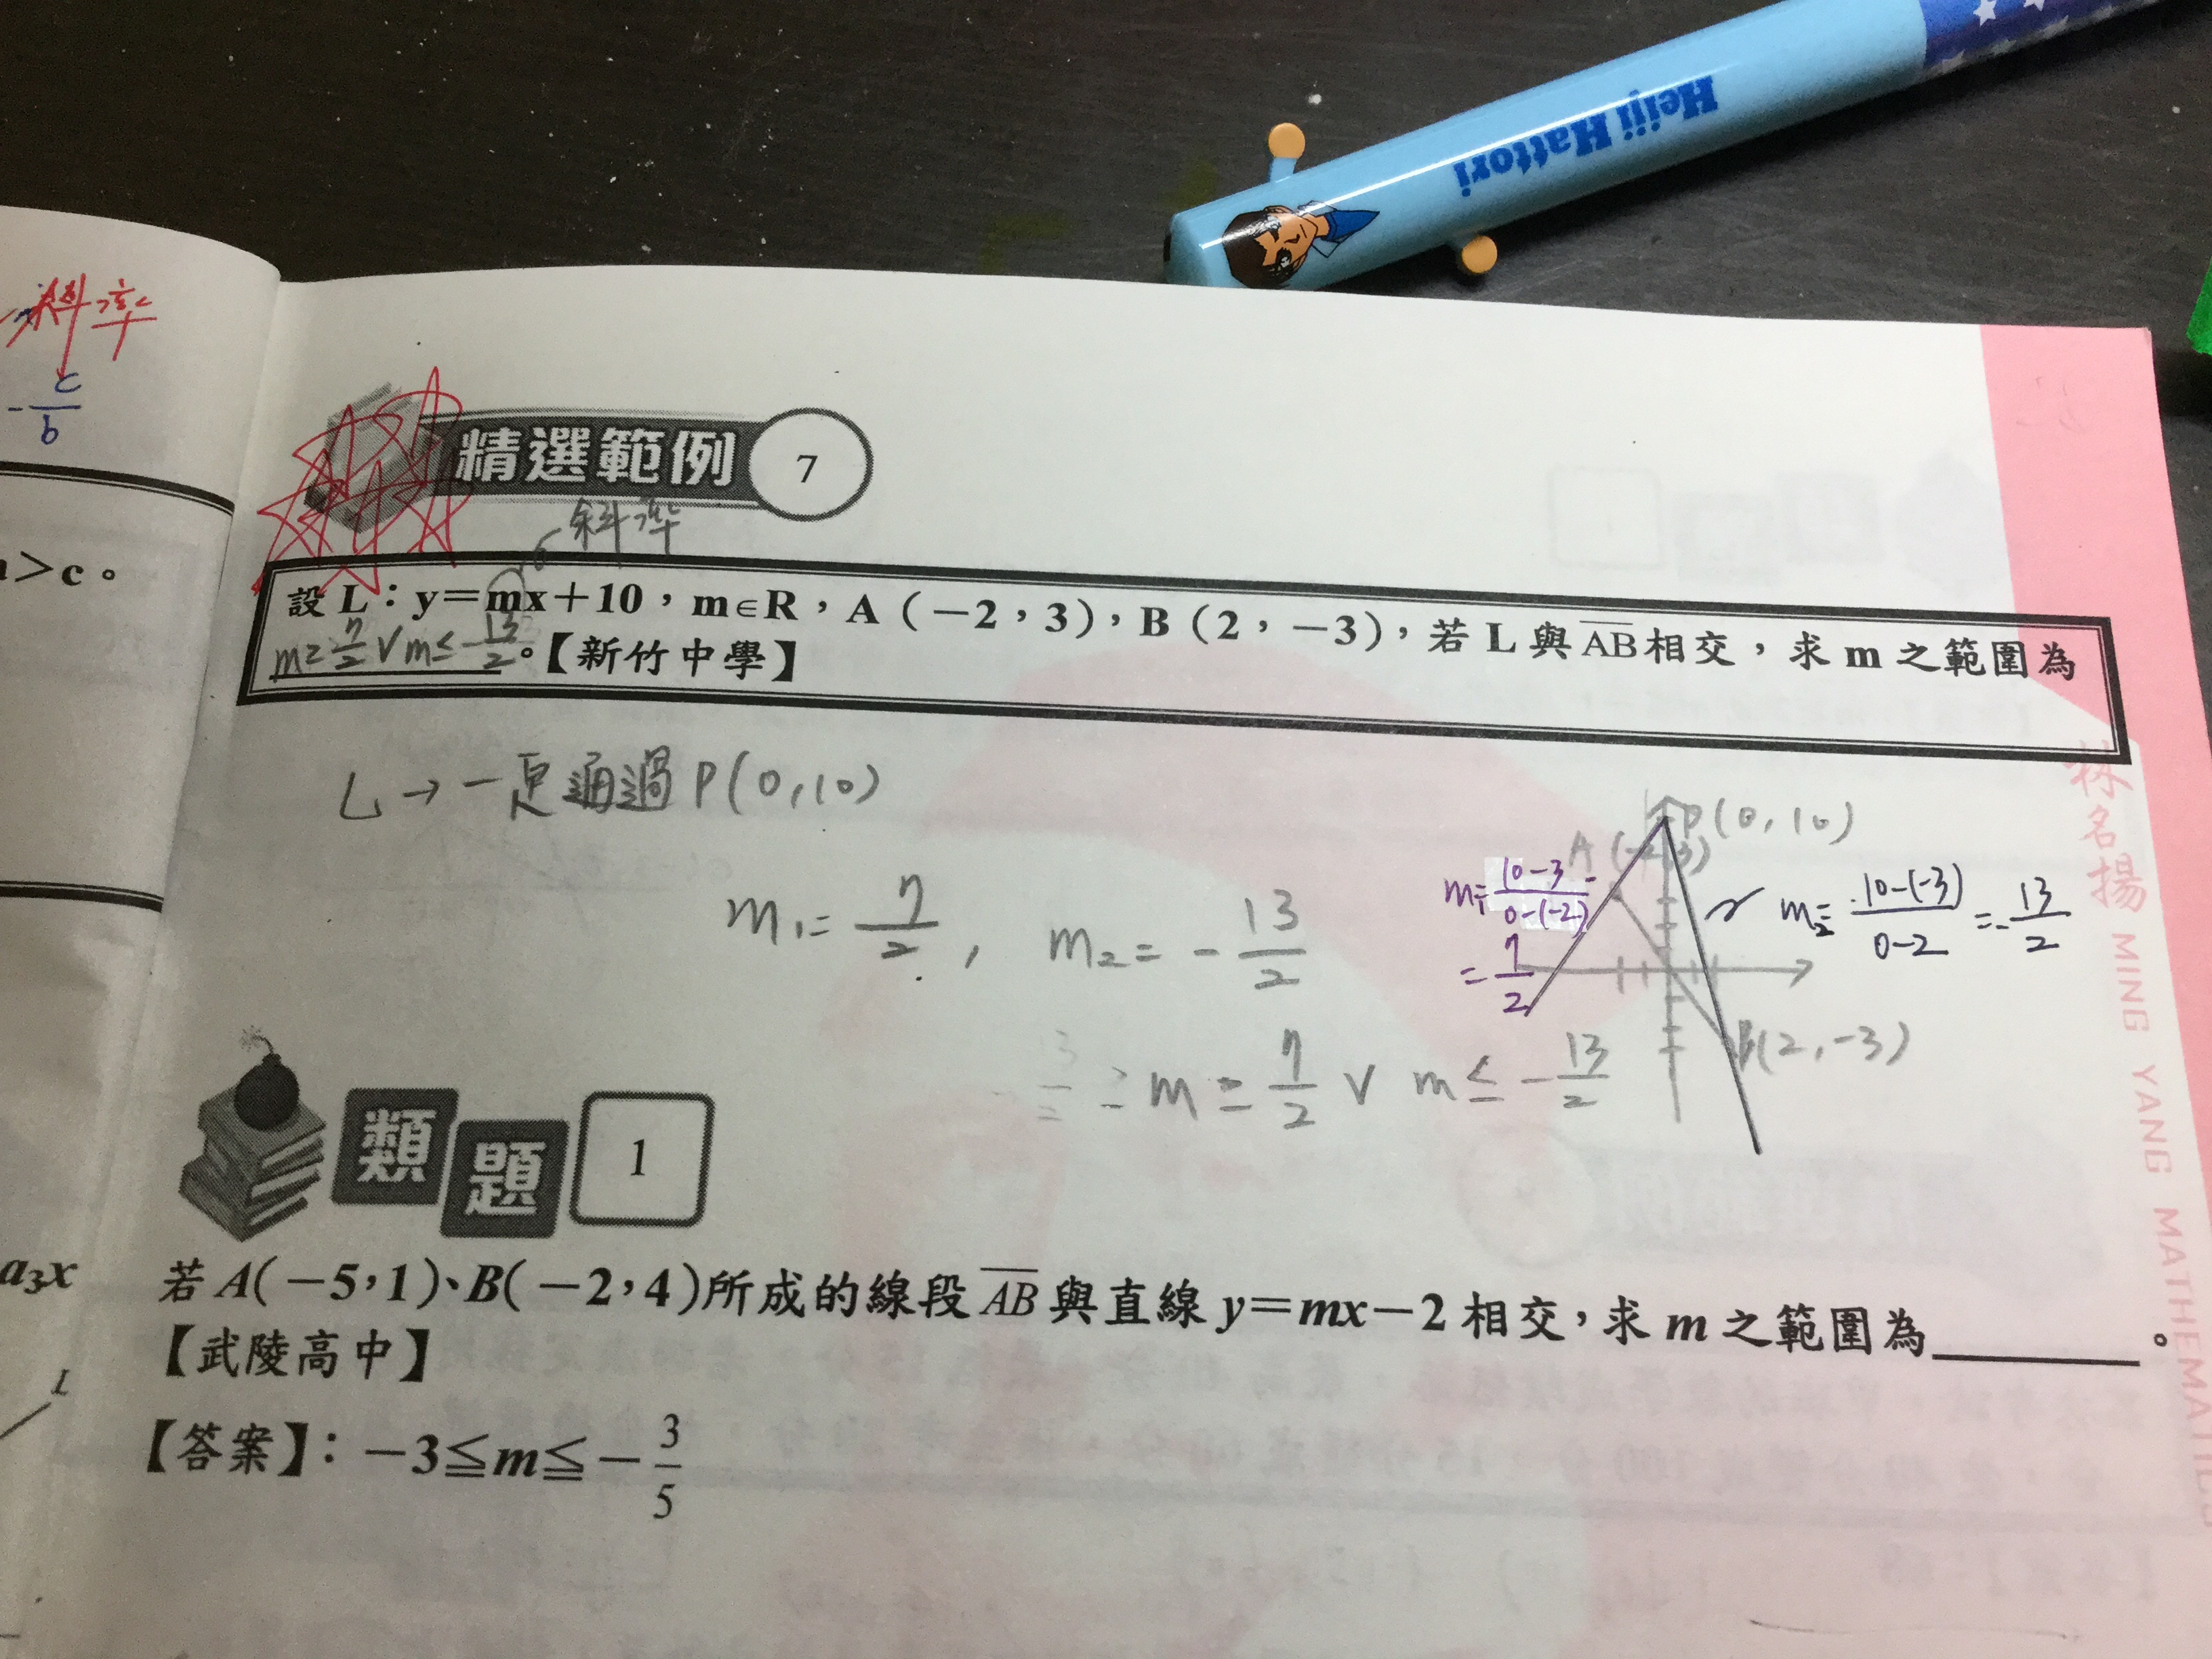 Heiji Hattori
斜率
-c/b
精選範例 7
斜率
a>c。
設 L：y＝mx＋10，m∈R，A（－2，3），B（2，－3），若 L 與 AB 相交，求 m 之範圍為
m≥7/2 ∨ m≤-13/2。【新竹中學】
L → 一定通過 P(0,10)
P(0,10)
A(-2,3)
m₁=7/2 , m₂=-13/2
m₁=10-3/0-(-2)
=7/2
m₂=10-(-3)/0-2=-13/2
B(2,-3)
≥m≥7/2 ∨ m≤-13/2
林名揚 MING YANG MATHEMATICS
類題 1
a₃x
若 A(－5，1)、B(－2，4)所成的線段 AB 與直線 y＝mx－2 相交，求 m 之範圍為＿＿＿＿。
【武陵高中】
L
【答案】：－3≦m≦－3/5